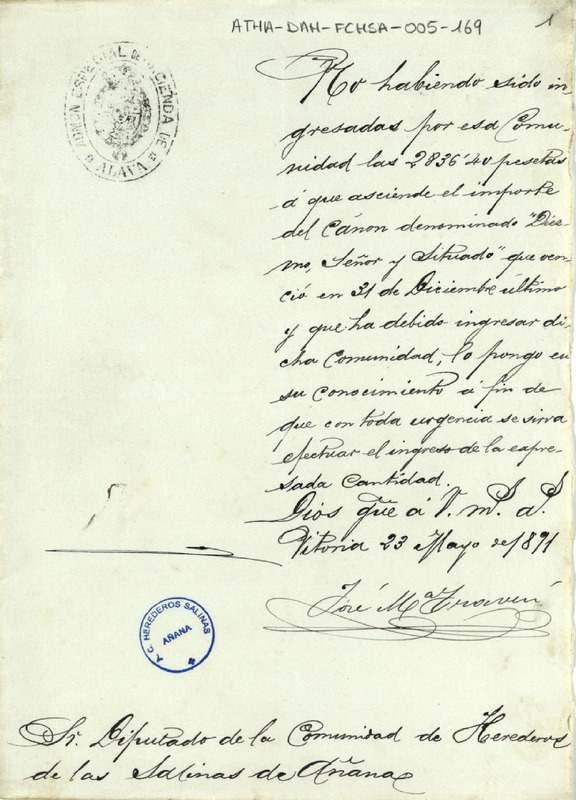 ATHA-DAH-FCHSA-005-169
1
ADMON ESPECIAL DE HACIENDA DE
ALAVA
No habiendo sido in-
gresadas por esa Comu-
nidad las 2836'40 pesetas
á que asciende el importe
del Cánon denominado "Diez-
mo, Señor y Situado" que ven-
ció en 31 de Diciembre último
y que ha debido ingresar di-
cha Comunidad, lo pongo en
su conocimiento á fin de
que con toda urgencia se sirva
efectuar el ingreso de la expre-
sada cantidad.
Dios gue á V. m. a.
Vitoria 23 Mayo de 1891
José Mª
A.C. HEREDEROS SALINAS
AÑANA
Sr. Diputado de la Comunidad de Herederos
de las Salinas de Añana